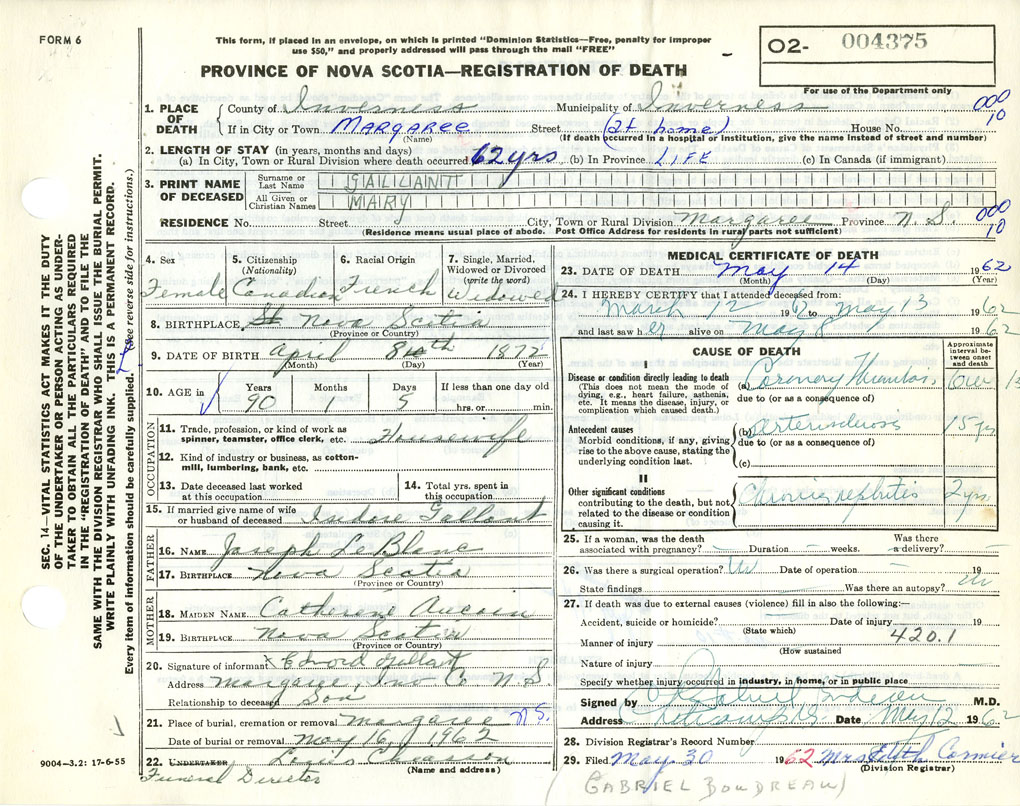 FORM 6
This form, if placed in an envelope, on which is printed "Dominion Statistics—Free, penalty for improper
use $50," and properly addressed will pass through the mail "FREE"
O2- 004375
For use of the Department only
PROVINCE OF NOVA SCOTIA—REGISTRATION OF DEATH
1. PLACE OF DEATH County of Inverness Municipality of Inverness 000 10
If in City or Town Margaree (Name) Street (at home) House No.
(If death occurred in a hospital or institution, give the name instead of street and number)
2. LENGTH OF STAY (in years, months and days)
(a) In City, Town or Rural Division where death occurred 62 yrs (b) In Province LIFE (c) In Canada (if immigrant)
3. PRINT NAME OF DECEASED
Surname or Last Name GALLANT
All Given or Christian Names MARY
RESIDENCE No. Street City, Town or Rural Division Margaree Province N.S. 000 10
(Residence means usual place of abode. Post Office Address for residents in rural parts not sufficient)
4. Sex Female
5. Citizenship (Nationality) Canadian
6. Racial Origin French
7. Single, Married, Widowed or Divorced (write the word) Widowed
8. BIRTHPLACE Nova Scotia
(Province or Country)
9. DATE OF BIRTH April 8th 1872
(Month) (Day) (Year)
10. AGE in Years 90 Months 1 Days 5 If less than one day old hrs. or min.
OCCUPATION
11. Trade, profession, or kind of work as spinner, teamster, office clerk, etc. Housewife
12. Kind of industry or business, as cotton-mill, lumbering, bank, etc.
13. Date deceased last worked at this occupation
14. Total yrs. spent in this occupation
15. If married give name of wife or husband of deceased Isidore Gallant
FATHER
16. NAME Joseph LeBlanc
17. BIRTHPLACE Nova Scotia
(Province or Country)
MOTHER
18. MAIDEN NAME Catherine Aucoin
19. BIRTHPLACE Nova Scotia
(Province or Country)
20. Signature of informant X Edward Gallant
Address Margaree Inv Co N.S.
Relationship to deceased Son
21. Place of burial, cremation or removal Margaree N.S.
Date of burial or removal May 16, 1962
22. UNDERTAKER Louis Chiasson
Funeral Director (Name and address)
MEDICAL CERTIFICATE OF DEATH
23. DATE OF DEATH May 14 1962
(Month) (Day) (Year)
24. I HEREBY CERTIFY that I attended deceased from:
March 12 1962 to May 13 1962
and last saw her alive on May 8 1962
CAUSE OF DEATH
Approximate interval between onset and death
I
Disease or condition directly leading to death
(This does not mean the mode of dying, e.g., heart failure, asthenia, etc. It means the disease, injury, or complication which caused death.)
(a) Coronary Thrombosis
due to (or as a consequence of)
Antecedent causes
Morbid conditions, if any, giving rise to the above cause, stating the underlying condition last.
(b) Arteriosclerosis 15 yrs
due to (or as a consequence of)
(c)
II
Other significant conditions
contributing to the death, but not related to the disease or condition causing it.
Chronic nephritis 2 yrs
25. If a woman, was the death associated with pregnancy? Duration weeks. Was there a delivery?
26. Was there a surgical operation? Date of operation
State findings Was there an autopsy?
27. If death was due to external causes (violence) fill in also the following:—
Accident, suicide or homicide? Date of injury 19
(State which)
Manner of injury 420.1
(How sustained
Nature of injury
Specify whether injury occurred in industry, in home, or in public place
Signed by Gabriel Boudreau M.D.
Address Cheticamp N.S. Date May 12 1962
28. Division Registrar's Record Number
29. Filed May 30 1962 Mrs Edith Cormier
(Division Registrar)
(GABRIEL BOUDREAU)
SEC. 14—VITAL STATISTICS ACT MAKES IT THE DUTY
OF THE UNDERTAKER OR PERSON ACTING AS UNDER-
TAKER TO OBTAIN ALL THE PARTICULARS REQUIRED
IN THE "REGISTRATION OF DEATH" AND TO FILE THE
SAME WITH THE DIVISION REGISTRAR WHO SHALL ISSUE THE BURIAL PERMIT.
WRITE PLAINLY WITH UNFADING INK. THIS IS A PERMANENT RECORD.
Every item of information should be carefully supplied. (See reverse side for instructions.)
9004-3.2: 17-6-55